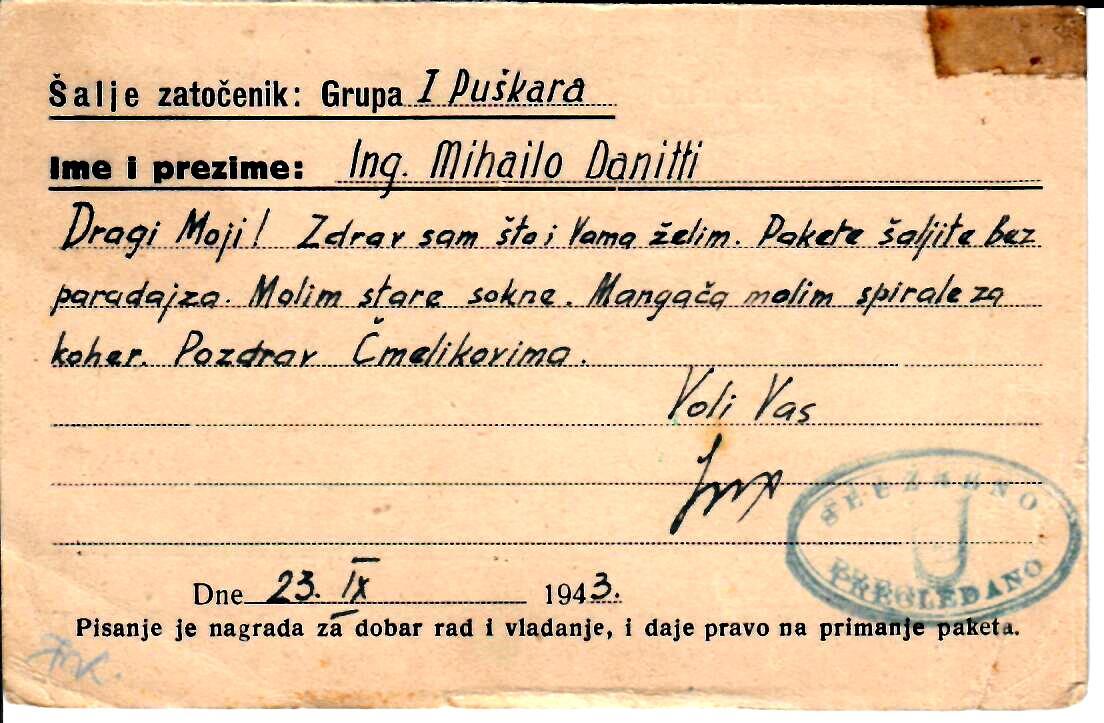 Šalje zatočenik: Grupa I Puškara
Ime i prezime: Ing. Mihailo Danitti
Dragi Moji! Zdrav sam što i Vama želim. Pakete šaljite bez
paradajza. Molim stare sokne. Mangača molim spirale za
koher. Pozdrav Čmelikovima.
Voli Vas
SLUŽBENO
PREGLEDANO
Dne 23. IX 1943.
Pisanje je nagrada za dobar rad i vladanje, i daje pravo na primanje paketa.